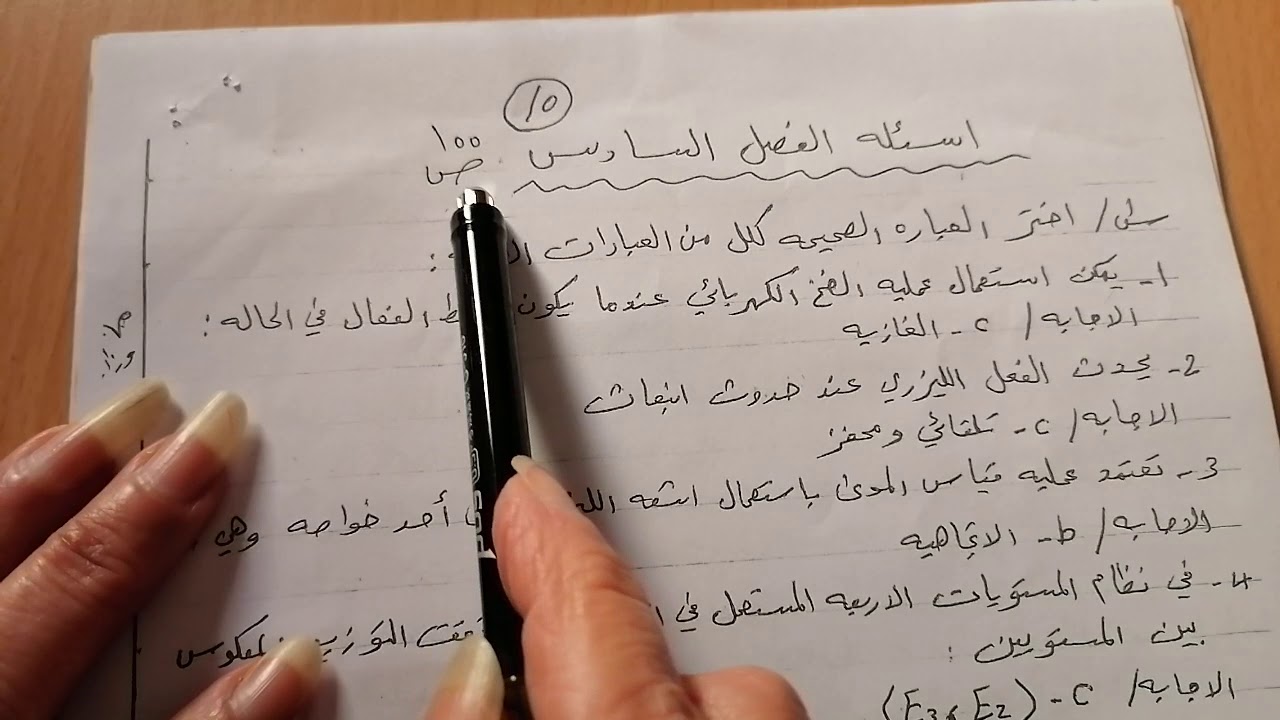 ١٥
اسئله الفصل السادس ١٠٠ ص
س١/ اختر العباره الصحيحه لكل من العبارات :
1- يمكن استعمال عمليه الضخ الكهربائي عندما يكون الفعال في الحاله :
الاجابه/ c- الغازيه
2- يحدث الفعل الليزري عند حدوث انبعاث
الاجابه/ c- تلقائي ومحفز
3- تعتمد عليه قياس المدى باستعمال اشعه أحد خواصه وهي
الاجابه/ b- الاتجاهيه
4- في نظام المستويات الاربعه المستعمل في التوزيع المعكوس
بين المستويين :
الاجابه/ c- (E3, E2)